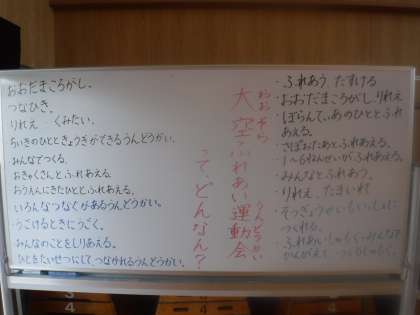 おおだまころがし、
つなひき、
りれえ くみたい、
ちいきのひとときょうぎができるうんどうかい。
みんなでつくる。
おきゃくさんとふれあえる。
おうえんにきたひととふれあえる。
いろんなつながりがあるうんどうかい。
うごけるときにうごく、
みんなのことをしりあえる。
ひとをたいせつにして、つながれるうんどうかい。
大空ふれあい運動会
おおぞら
うんどうかい
って、どんなん？
・ふれあう、たすける
・おおだまころがし、りれえ
・ぼらんてぃあのひととふれ
あえる。
・さぽおたあとふれあえる。
・1~6ねんせいがふれあえる。
・みんなとふれあう。
・りれえ、たまいれ
・そつぎょうせいもいっしょに
つくれる。
・ふれあい
かんがえて